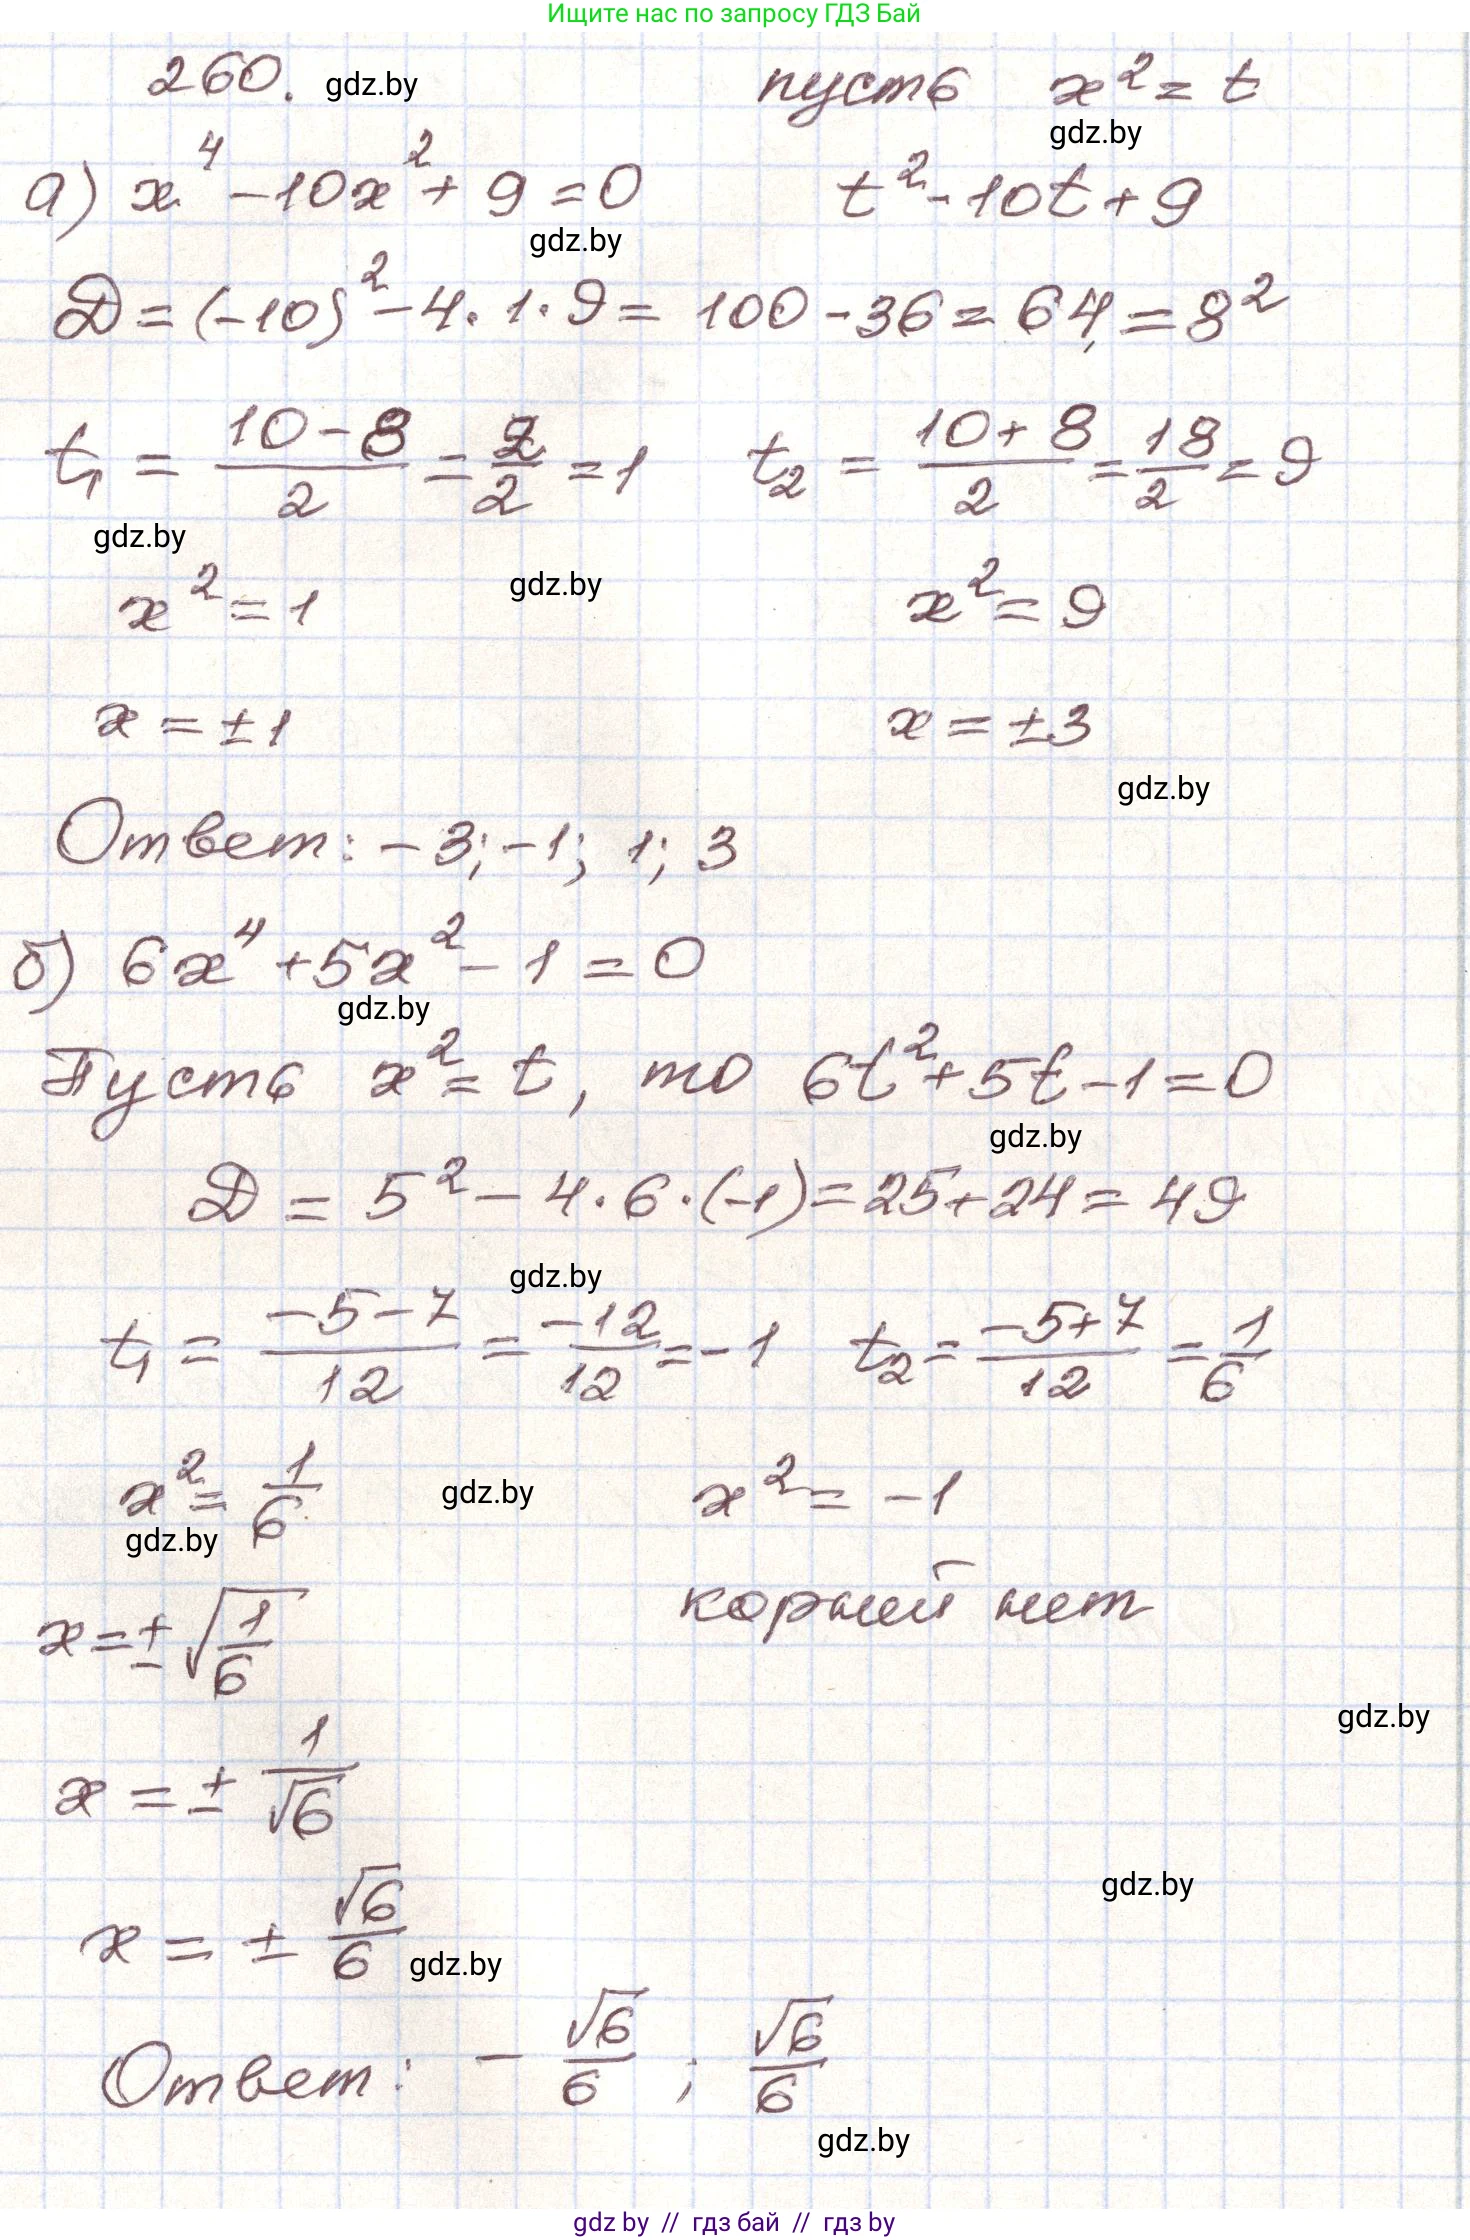 Ищите нас по запросу ГДЗ Бай
260. gdz.by пусть x² = t
gdz.by
а) x⁴ - 10x² + 9 = 0 t² - 10t + 9
gdz.by
D = (-10)² - 4 · 1 · 9 = 100 - 36 = 64 = 8²
t₁ = (10 - 8)/2 = 2/2 = 1 t₂ = (10 + 8)/2 = 18/2 = 9
gdz.by
x² = 1 gdz.by x² = 9
x = ±1 x = ±3
gdz.by
Ответ: -3; -1; 1; 3
б) 6x⁴ + 5x² - 1 = 0
gdz.by
Пусть x² = t, то 6t² + 5t - 1 = 0
gdz.by
D = 5² - 4 · 6 · (-1) = 25 + 24 = 49
gdz.by
t₁ = (-5 - 7)/12 = -12/12 = -1 t₂ = (-5 + 7)/12 = 1/6
x² = 1/6 gdz.by x² = -1
gdz.by
x = ±√(1/6) корней нет
gdz.by
x = ± 1/√6
gdz.by
x = ± √6/6 gdz.by
Ответ: - √6/6 ; √6/6
gdz.by
gdz by // гдз бай // гдз by